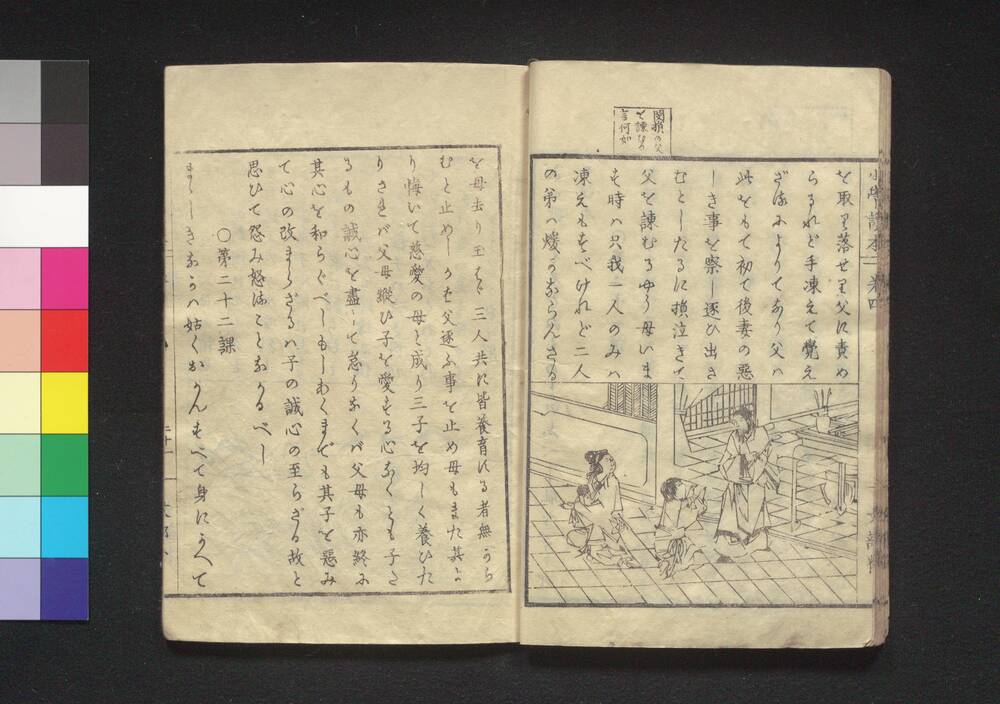 閔損の父
を諫むる
言何如
小學讀本 卷四
を取り落せり父に責め
らるれど手凍えて覺え
ざるによりてなり父ハ
此をもて初て後妻の惡
しき事を察し逐ひ出さ
むとしたるに損泣きて
父を諫むるやう母いま
す時ハ只我一人のみハ
凍えもすべけれど二人
の弟ハ煖かならんさる
を母去り玉はゞ三人共に皆養育する者無から
むと止めしかば父逐ふ事を止め母もまた其よ
り悔いて慈愛の母と成り三子を均しく養ひた
りされバ父母縱ひ子を愛する心なくとも子た
るもの誠心を盡して怠りなくバ父母も亦終に
其心を和らぐべしもしあくまでも其子を惡み
て心の改まらざるハ子の誠心の至らざる故と
思ひて怨み怒ることなかるべし
○第二十二課
まゝしきなかハ姑くおかんすべて身にかへて